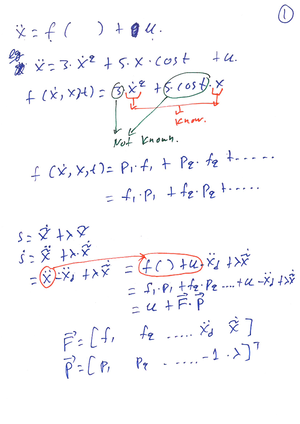 ①
ẍ = f ( ) + u.
Eg ẍ = 3·ẋ² + 5·x·cost + u
f(ẋ, x, t) = 3·ẋ² + 5·cost·x
Know.
Not Known.
f(ẋ, x, t) = P₁·f₁ + P₂·f₂ + .....
= f₁·P₁ + f₂·P₂ + .....
s = x̃̇ + λx̃
ṡ = x̃̈ + λ·x̃̇
= ẍ - ẍd + λx̃̇ = f( ) + u - ẍd + λx̃̇
= f₁·P₁ + f₂·P₂ ....+ u - ẍd + λx̃̇
= u + F⃗·P⃗
F⃗ = [f₁ f₂ ..... ẍd x̃̇]
P⃗ = [P₁ P₂ ..... -1 · λ]ᵀ